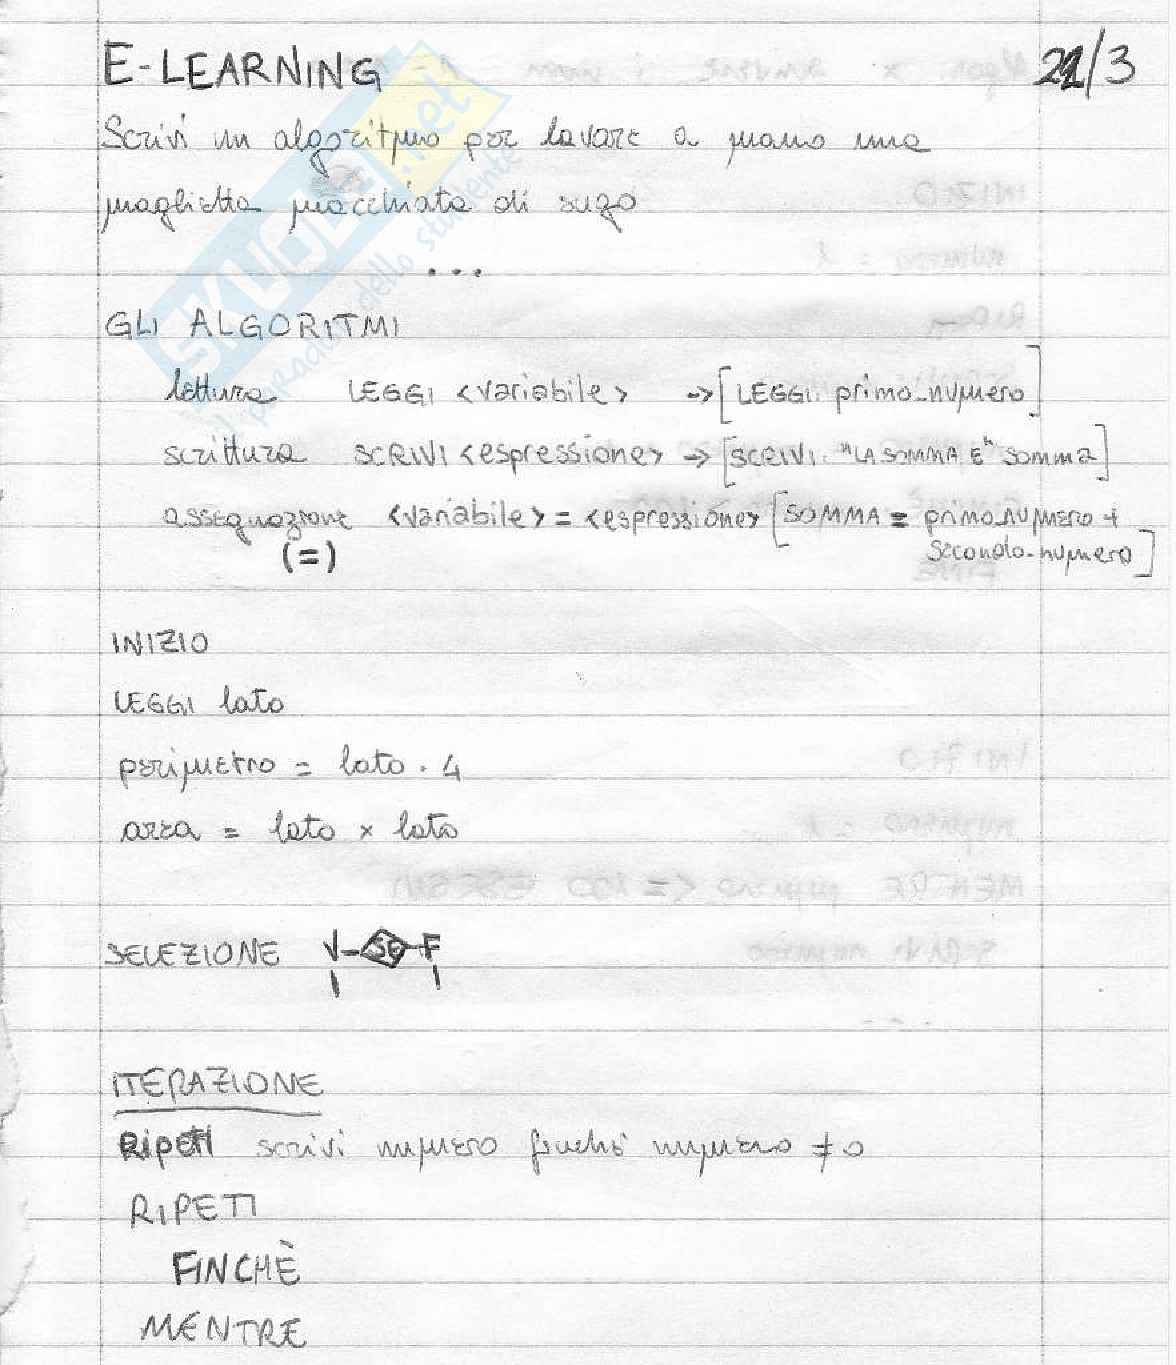 E-LEARNING 21/3
Scrivi un algoritmo per lavare a mano una
maglietta macchiata di sugo
...
GLI ALGORITMI
lettura LEGGI <variabile> -> [LEGGI primo_numero]
scrittura SCRIVI <espressione> -> [SCRIVI "LA SOMMA E" somma]
assegnazione <variabile> = <espressione> [SOMMA = primo_numero +
(=) secondo-numero]
INIZIO
LEGGI lato
perimetro = lato · 4
area = lato × lato
SELEZIONE V-SE-F
ITERAZIONE
Ripeti scrivi numero finché numero ≠ 0
RIPETI
FINCHÈ
MENTRE
SKUOLA.net
il paradiso dello studente